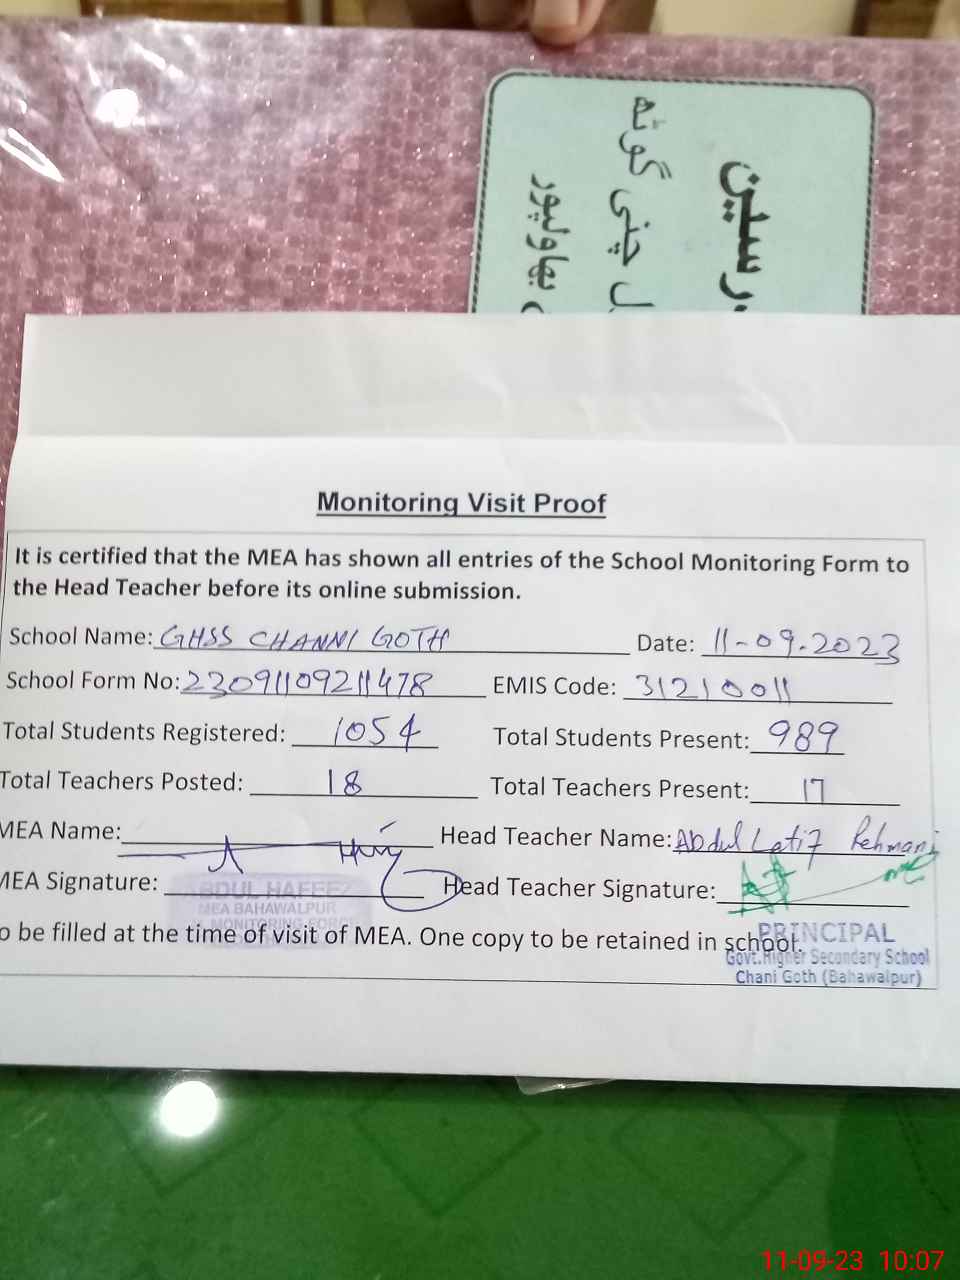 رسلین
ل چنی گوٹھ
بھاولپور
Monitoring Visit Proof
It is certified that the MEA has shown all entries of the School Monitoring Form to
the Head Teacher before its online submission.
School Name: GHSS CHANNI GOTH Date: 11-09.2023
School Form No: 23091109211478 EMIS Code: 31210011
Total Students Registered: 1054 Total Students Present: 989
Total Teachers Posted: 18 Total Teachers Present: 17
MEA Name: Head Teacher Name: Abdul Latif Rehmani
MEA Signature: Head Teacher Signature:
ABDUL HAFEEZ
MEA BAHAWALPUR
MONITORING FORCE
o be filled at the time of visit of MEA. One copy to be retained in school.
PRINCIPAL
Govt.Higher Secondary School
Chani Goth (Bahawalpur)
11-09-23 10:07